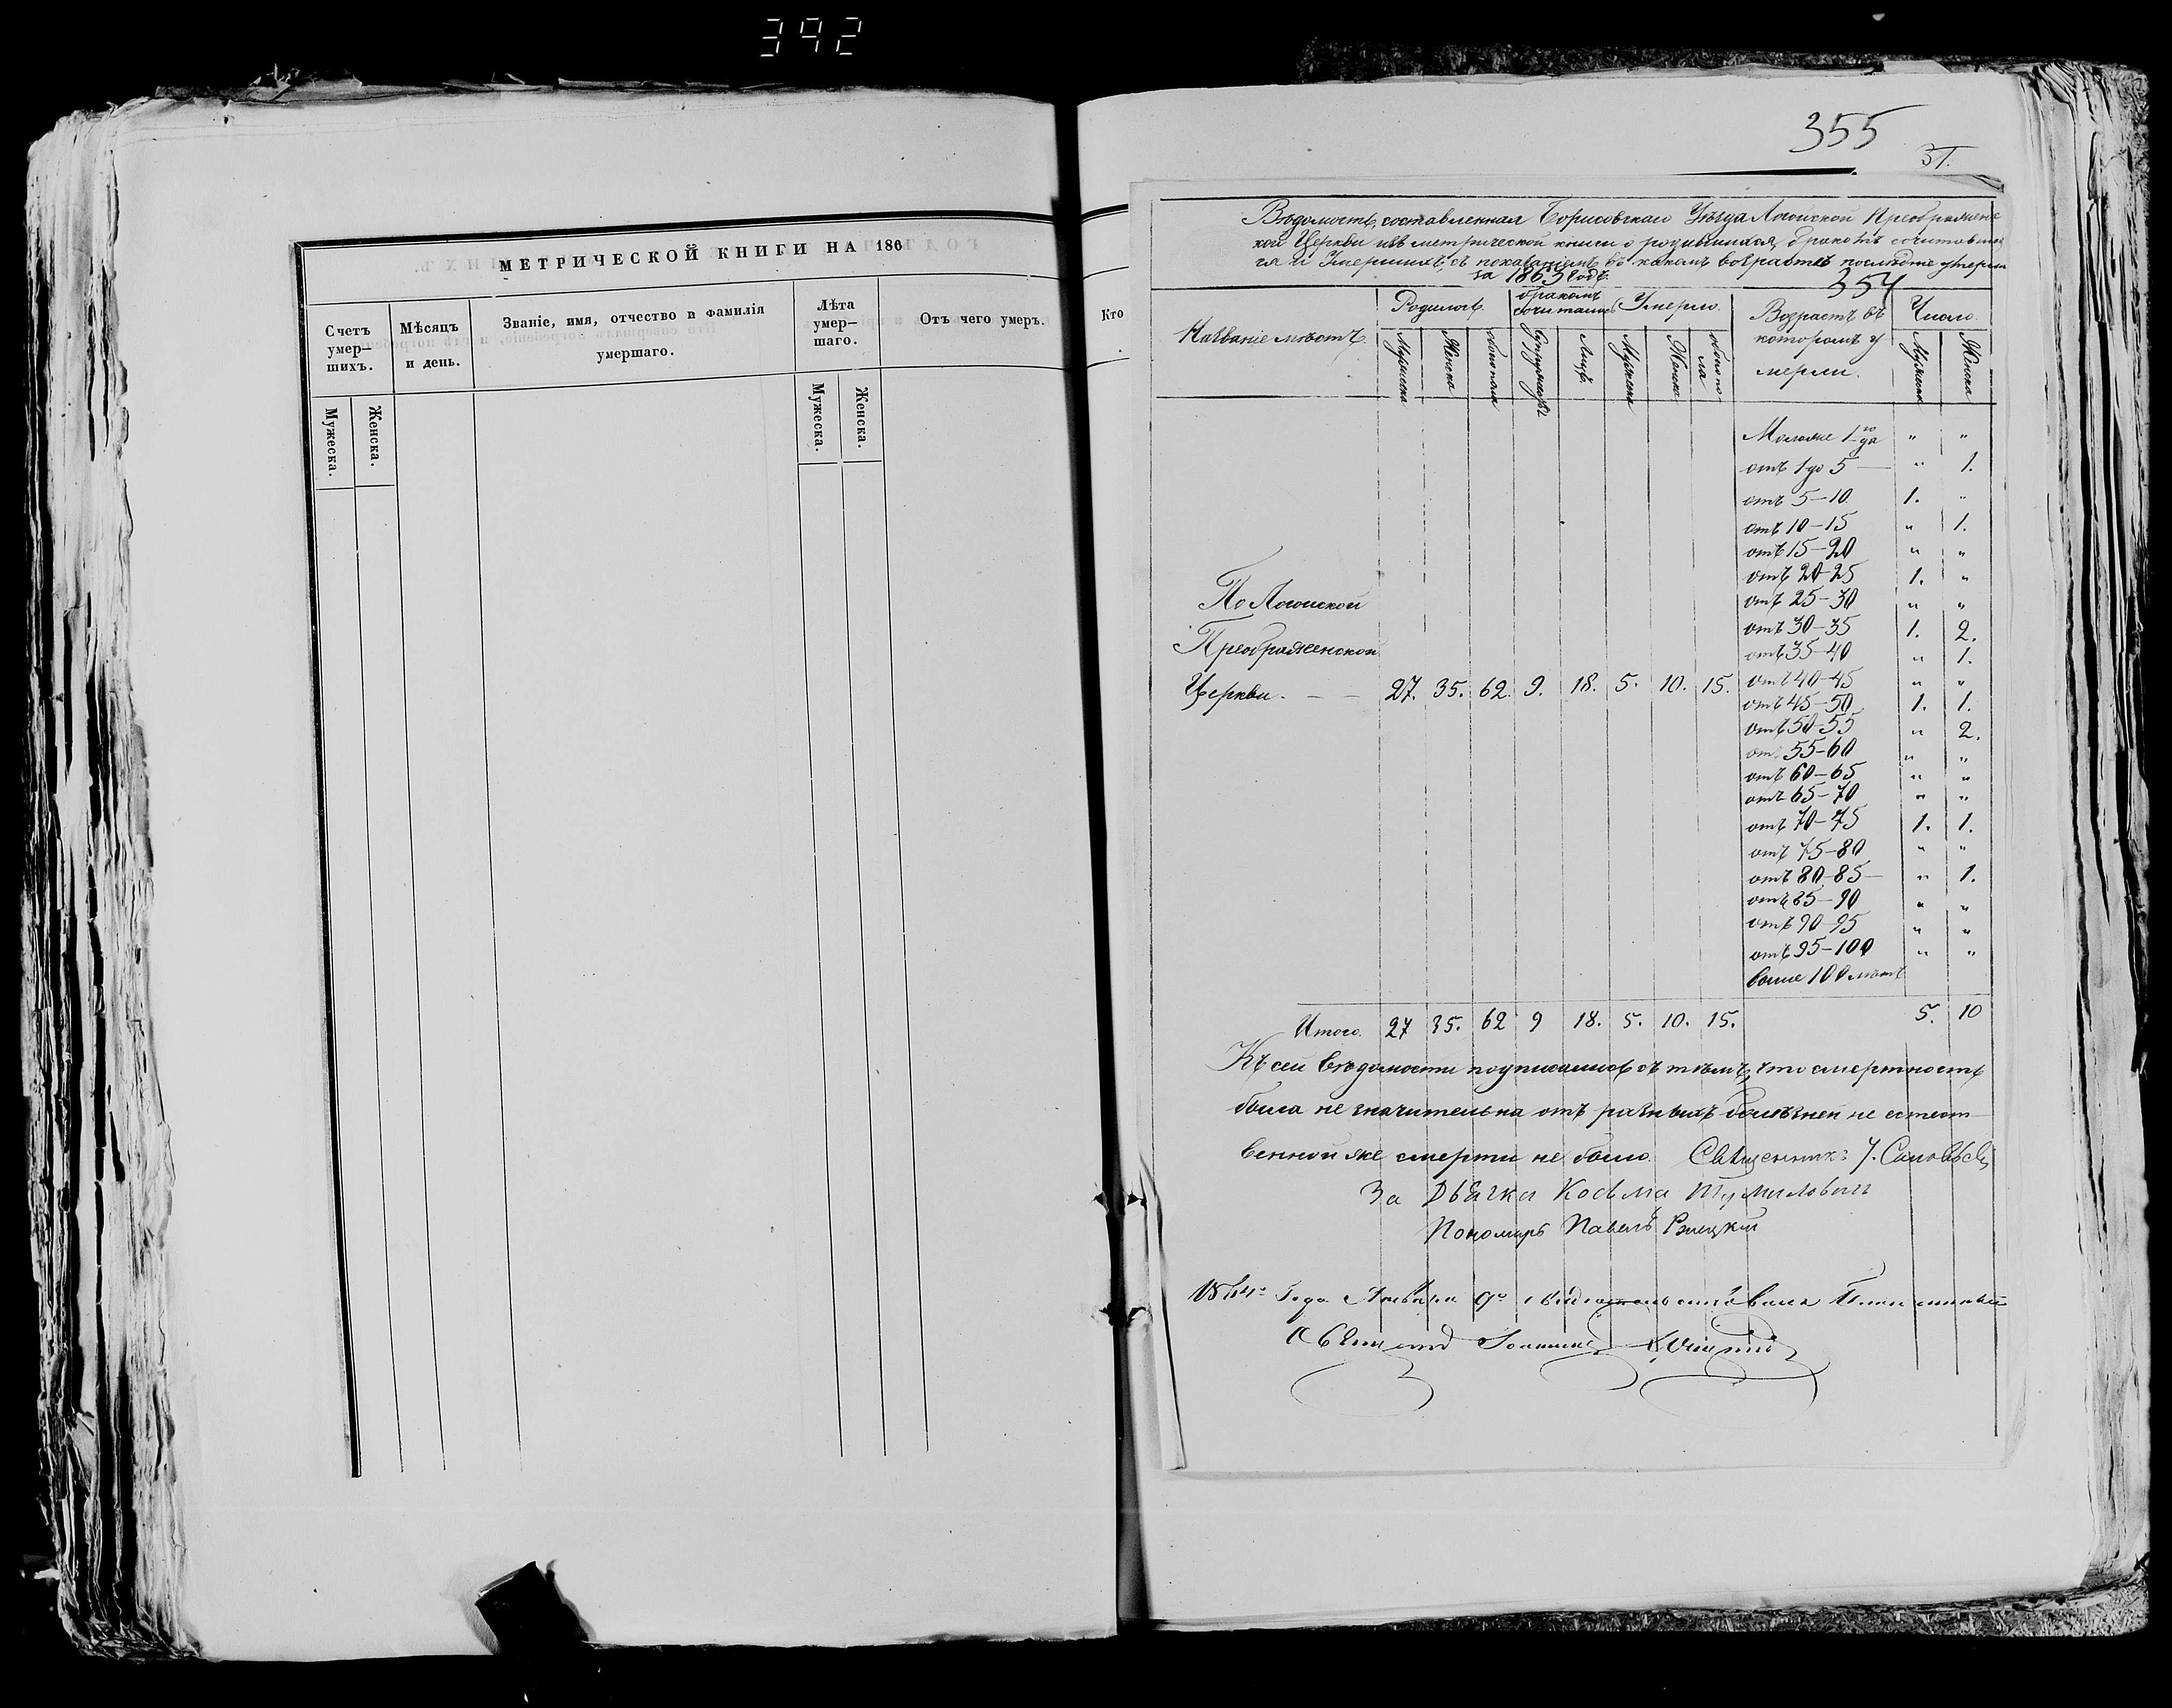 392
МЕТРИЧЕСКОЙ КНИГИ НА 186
Счетъ умер-шихъ.
Мѣсяцъ и день.
Званіе, имя, отчество и фамилія умершаго.
Лѣта умер-шаго.
Отъ чего умеръ.
Кто
Мужеска.
Женска.
Мужеска.
Женска.
355
31.
Вѣдомость, составленная Борисовскаго Уѣзда Логойской Преображенс
кой Церкви изъ метрической книги о родившихся, бракомъ сочитавших
ся и Умершихъ, съ показаніемъ въ какомъ возрастѣ послѣдніе умерли
за 1863 Годъ.
354
Названіе мѣстъ.
Родилось.
бракомъ сочиталось
Умерло.
Возрастъ въ которомъ умерли.
Число.
Мужеска
Женска
обоего пола
Супружествъ
Лицъ
Мужеска
Женска
обоего пола
Мужеска
Женска
Моложе 1 года " "
отъ 1 до 5 — " 1.
отъ 5–10 1. "
отъ 10–15 " 1.
отъ 15–20 " "
отъ 20–25 1. "
отъ 25–30 " "
отъ 30–35 1. 2.
отъ 35–40 " 1.
отъ 40–45 " "
отъ 45–50 1. 1.
отъ 50–55 " 2.
отъ 55–60 " "
отъ 60–65 " "
отъ 65–70 " "
отъ 70–75 1. 1.
отъ 75–80 " "
отъ 80–85 — " 1.
отъ 85–90 " "
отъ 90–95 " "
отъ 95–100 " "
выше 100 лѣтъ
По Логойской
Преображенской
Церкви. — — 27. 35. 62. 9. 18. 5. 10. 15.
Итого. 27 35. 62 9 18. 5. 10. 15. 5. 10
Къ сей вѣдомости подписались съ тѣмъ, что смертность
была не значительна отъ разныхъ болѣзней не естест
венной же смерти не было. Священникъ Соловьев
За Дьячка Косьма
Пономарь Павелъ
1864 Года Января 9